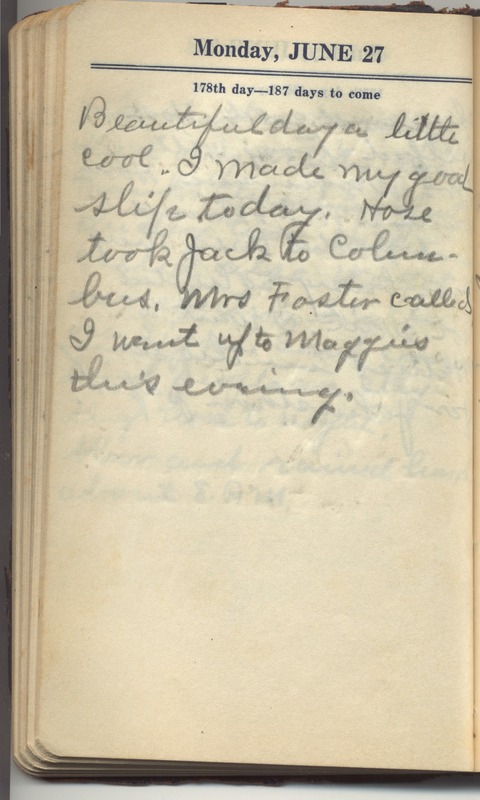 Monday, JUNE 27
178th day—187 days to come
Beautiful day a little
cool. I made my good
slip today. Hose
took Jack to Colum-
bus. Mrs Foster called
I went up to Maggies
this evening.